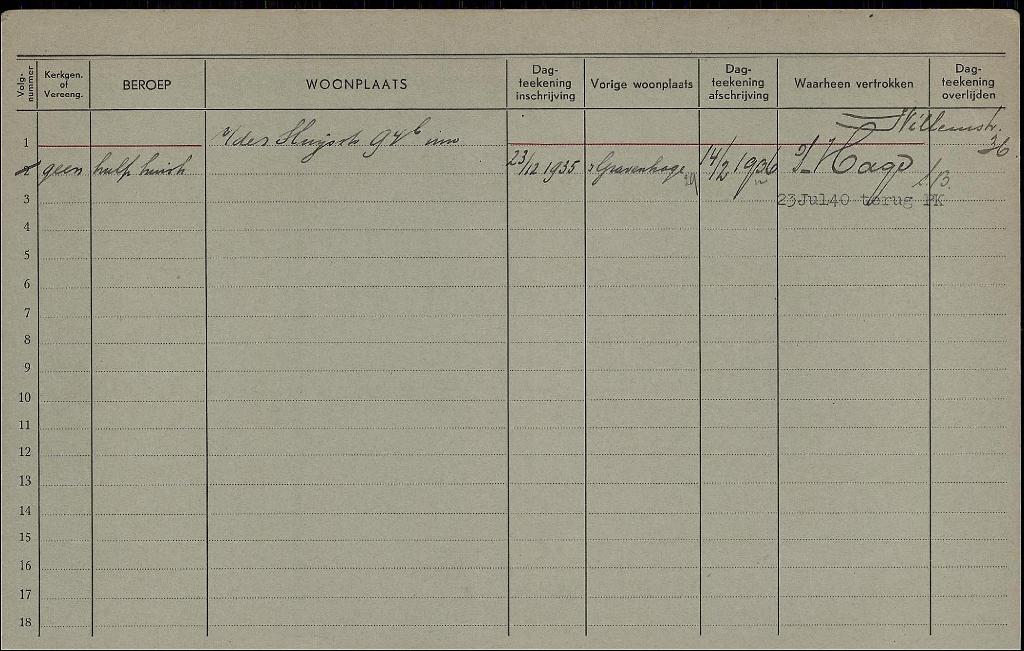 Volg-nummer Kerkgen. of Vereeng. BEROEP WOONPLAATS Dag-teekening inschrijving Vorige woonplaats Dag-teekening afschrijving Waarheen vertrokken Dag-teekening overlijden
Willemstr. 36
1 v/der Huijsstr 94b inw
2 geen hulp huish 23/12 1935 's Gravenhage 14/2 1936 's Hage
3 23 Jul 40 terug PK
4
5
6
7
8
9
10
11
12
13
14
15
16
17
18